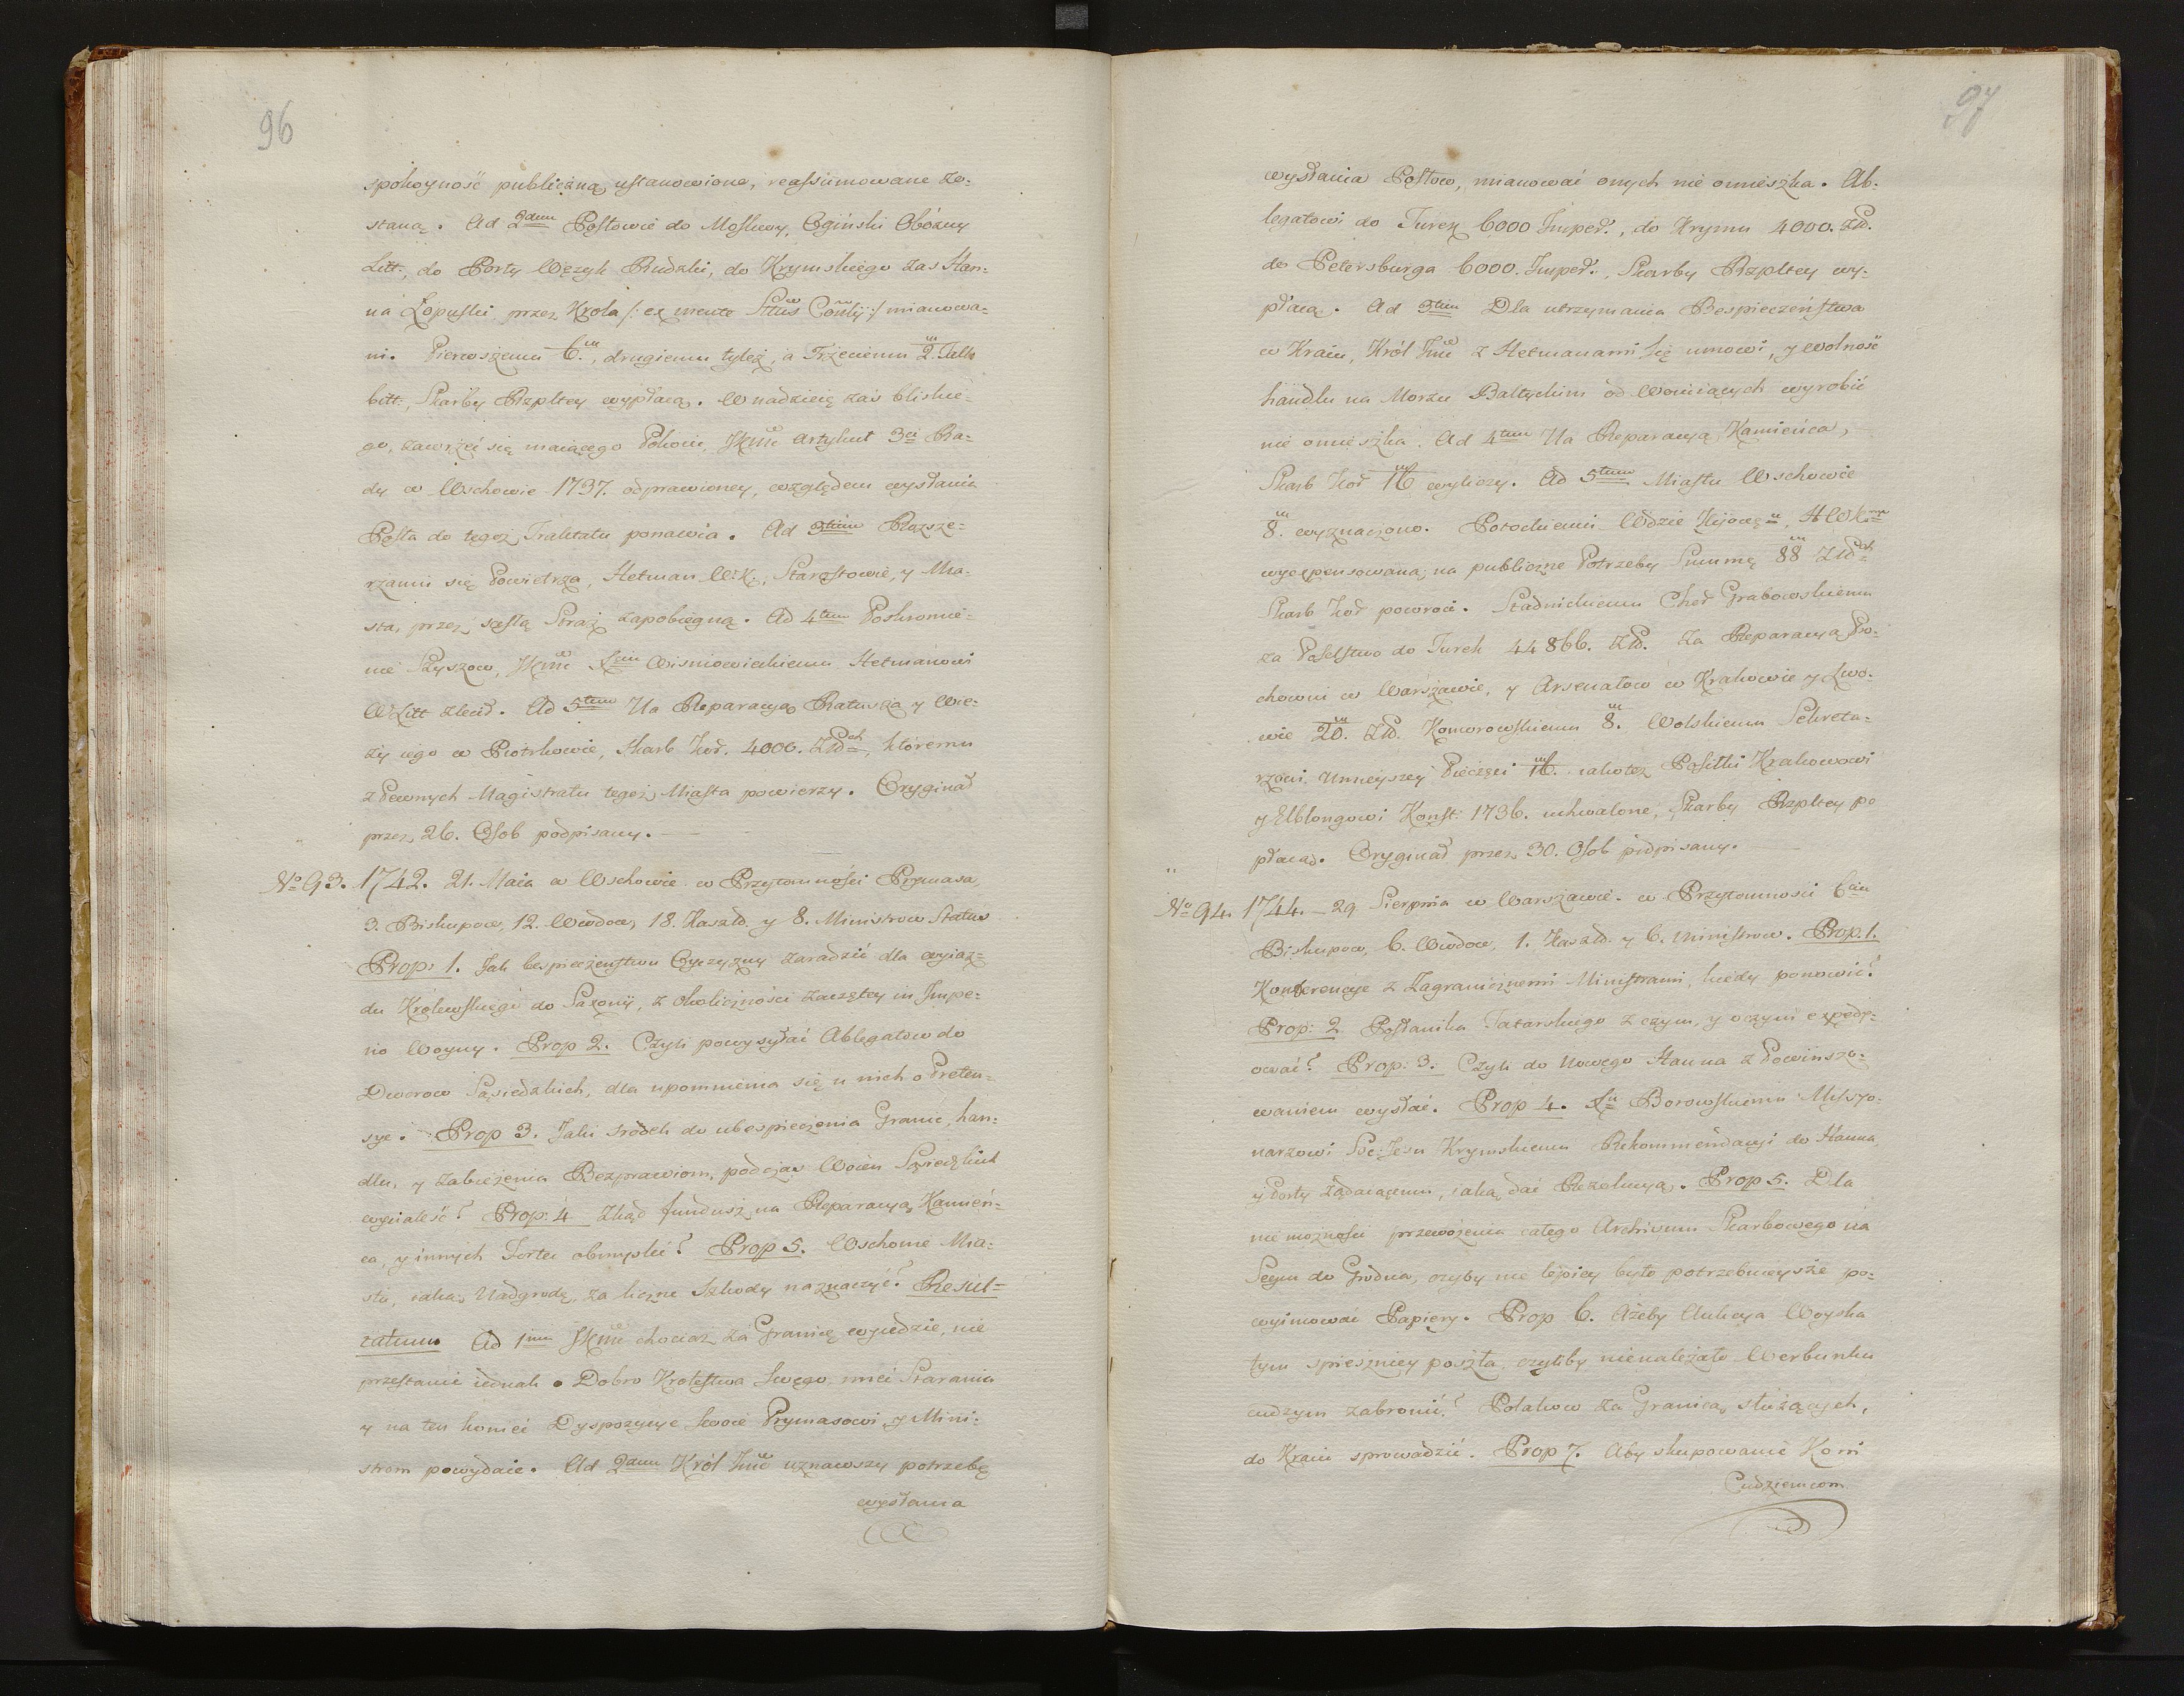 96
spokoyność publiczną ustanowione, reassumowane zo-
staną. Ad 2dum Posłowie do Moskwy, Ogiński Obóżny
Litt:, do Porty Wężyk Rudzki, do Krymskiego zas Han-
na Łopuski przez Krola /: ex mente Sttus Conlij :/ mianowa-
ni. Pierwszemu 6.m, drugiemu tyleż, a Trzeciemu 2.m Tall:
bitt:, Skarby Rzpltey wypłacą. W nadzieię zas bliskie-
go, zawrzeć się maiącego Pokoiu, JKMć Artykuł 3ci Ra-
dy w Wschowie 1737. odprawioney, względem wysłania
Posła do tegoż Traktatu ponawia. Ad 3tium Rozsze-
rzaniu się Powietrza, Hetman W.K., Starostowie, y Mia-
sta, przez sęstą Straż zapobiegną. Ad 4tum Poskromie-
nie Szyszow, JKMć Xciu Wisniowieckiemu Hetmanowi
W Litt zlecił. Ad 5tum Na Reparacyą Ratusza y Wie-
ży iego w Piotrkowie, Skarb Kor. 4000. Złłch, któremu
z Pewnych Magistratu tegoż Miasta powierzy. Oryginał
przez 26. Osob podpisany.
No 93. 1742. 21. Maia w Wschowie w Przytomności Prymasa,
3. Biskupow, 12. Wwdow, 18. Kasztd. y 8. Ministrow Status
Prop: 1. Jak bespieczenstwu Oyczyzny zaradzić dla wyiaz-
du Królewskiego do Saxonij, z okoliczności zaczętey in Impe-
rio Woyny. Prop 2. Czyli powysyłać Ablegatow do
Dworow Sąsiedzkich, dla upomnienia się u nich o Preten-
sye. Prop 3. Jaki srodek do ubespieczenia Granic, han-
dlu, y zabieżenia Bezprawiom, podczas Woien Sąsiedzkich
wynaleść? Prop: 4 Zkąd fundusz na Reparacyą Kamień-
ca, y innych Fortec obmyslić? Prop 5. Wschowie Mia-
stu, iaką Nadgrodę za liczne Szkody naznaczyć? Resul-
tatum Ad 1mum JKMć chociaz za Granicę wyiedzie, nie
przestanie iednak o Dobro Krolestwa Swego mieć Starania
y na ten koniec Dyspozycye swoie Prymasowi y Mini-
strom powydaie. Ad 2dum Król Jmć uznawszy potrzebę
wysłania
97
wysłania Posłow, mianować onych nie omieszka. Ab-
legatowi do Turek 6000 Imper., do Krymu 4000. Złł.
do Petersburga 6000. Imper., Skarby Rzpltey wy-
płacą. Ad 3tium Dla utrzymania Bespieczeństwa
w Kraiu, Król Jmć z Hetmanami się umowi, y wolność
handlu na Morzu Baltyckim od Woniących wyrobić
nie omieszka. Ad 4tum Na Reparacyą Kamieńca,
Skarb Kor 16m wyliczy. Ad 5tum Miastu Wschowie
8.m wyznaczono. Potockiemi Wdzie Kijowu, HWKmu
wyexpensowaną na publiczne Potrzeby Summę 88m Złłch
Skarb Kor powroci. Stadnickiemu Cher Grabowskiemu
za Poselstwo do Turek 44866. Złł. Za Reparacyą Pro-
chowni w Warszawie, y Arsenałow w Krakowie y Lwo-
wie 20.m Złł. Komorowskiemu 8.m Wolskiemu Sekreta-
rzowi Mnieyszey Pieczęci 16m. iakoteż Posiłki Krakowowi
y Elblongowi Konst: 1736. uchwalone, Skarby Rzpltey po
płacą. Oryginał przez 30. Osob podpisany.
No 94. 1744. 29 Sierpnia w Warszawie. w Przytomności 6ciu
Biskupow, 6. Wwdow, 1. Kasztd. y 6. Ministrow. Prop. 1.
Konferencye z Zagranicznemi Ministrami, kiedy ponowić?
Prop: 2 Posłanika Tatarskiego z czym, y o czym expedy-
ować? Prop: 3. Czyli do Nowego Hanna z Powinszo-
waniem wysłać. Prop 4. Xu Borowskiemu Missyo-
narzowi Soc: Jesu Krymskiemu Rekommendacyi do Hanna,
y Porty żądaiącemu, iaką dać Rezolucyą. Prop 5. Dla
niemożności przewożenia całego Archivum Skarbowego na
Seym do Grodna, czyby nie lepiey było potrzebnieysze po-
wyimować Papiery. Prop 6. Ażeby Aukcya Woyska
tym spieszniey poszła, czyliby nienależało Werbunku
cudzym zabronić? Polakow za Granicą służących,
do Kraiu sprowadzić. Prop 7. Aby skupowanie Koni
Cudziemcom